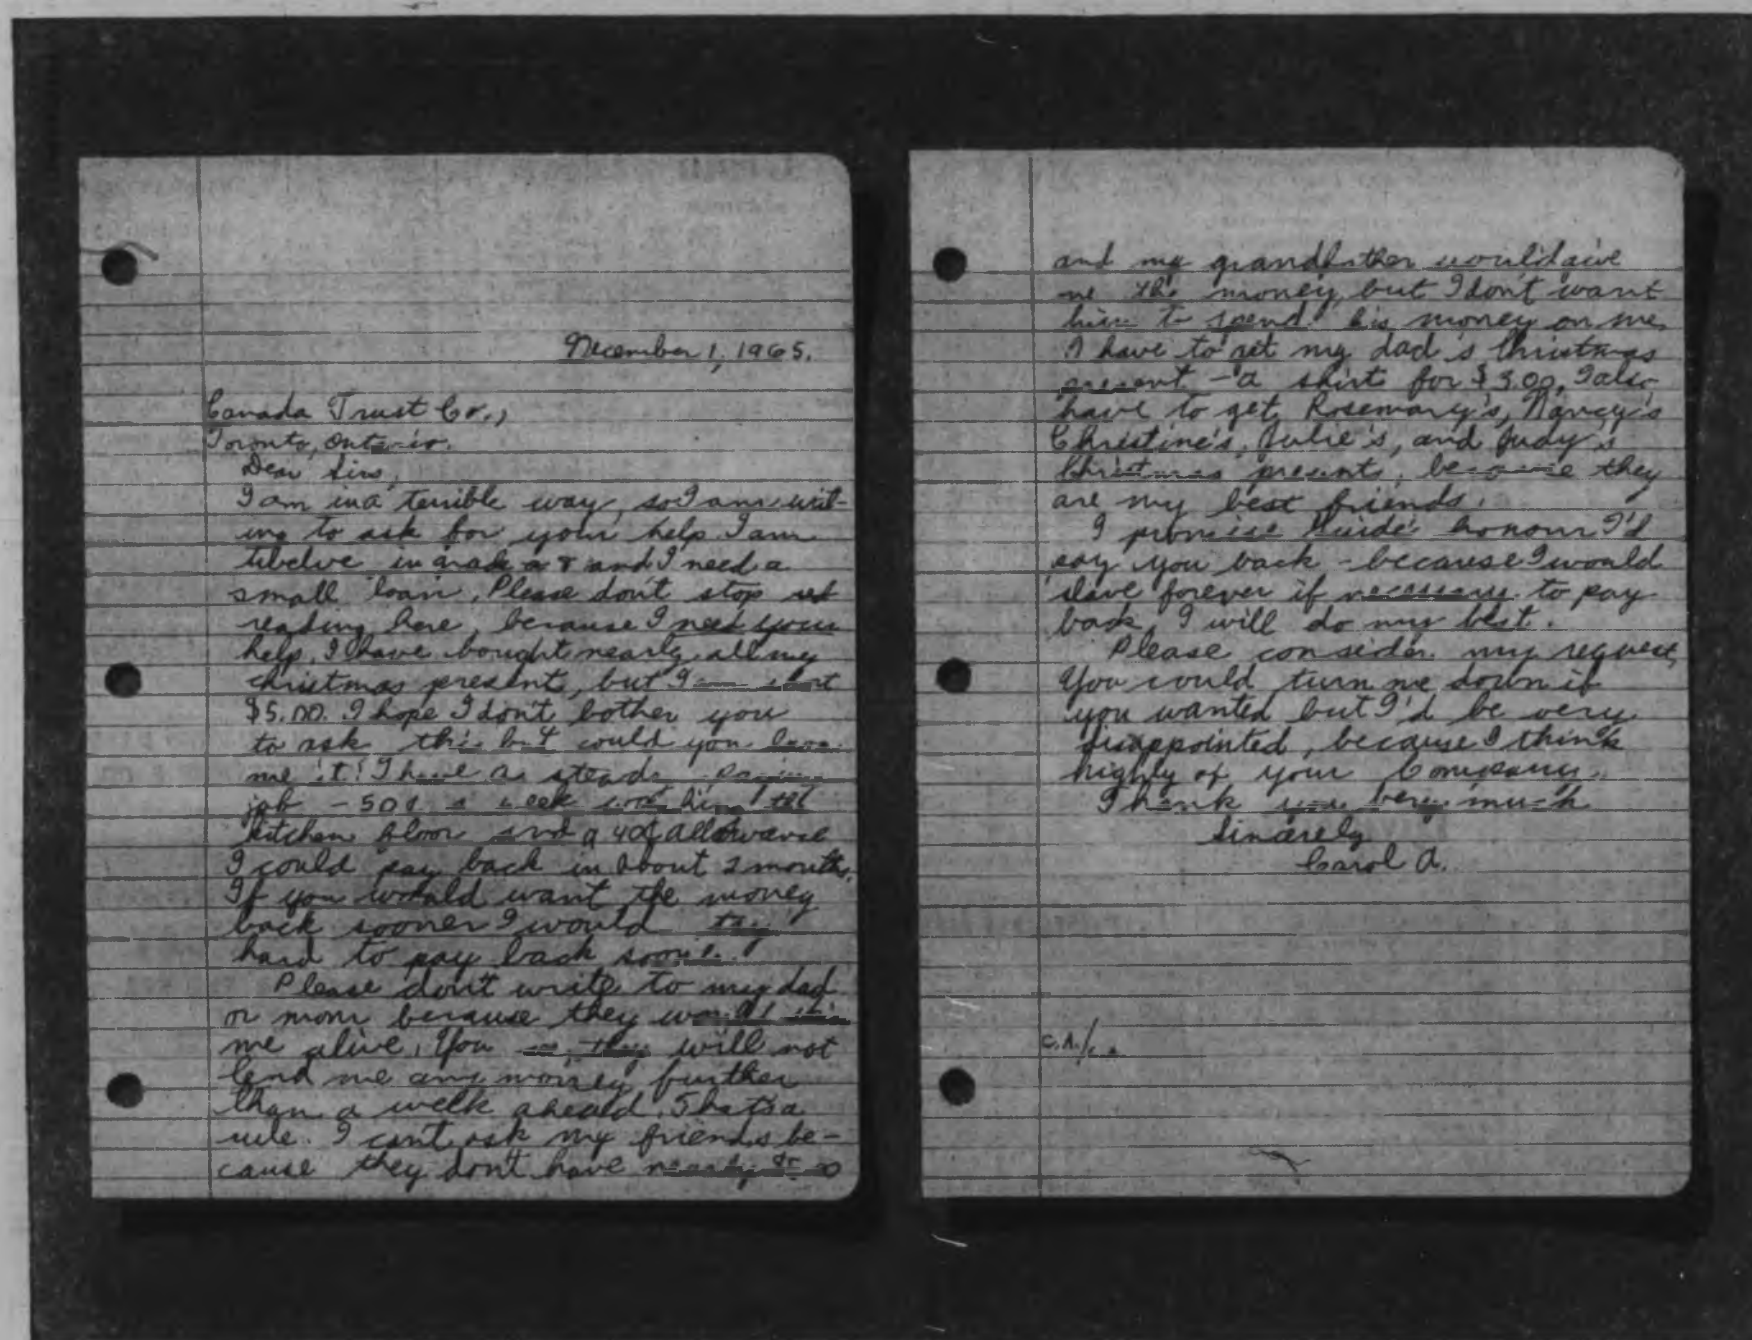 December 1, 1965.
Canada Trust Co.,
Toronto, Ontario.
Dear Sirs,
I am in a terrible way, so I am writ-
ing to ask for your help. I am
twelve in grade 8 and I need a
small loan. Please don't stop
reading here, because I need your
help. I have bought nearly all my
christmas present, but I am short
$5.00. I hope I don't bother you
to ask this but could you loan
me it! I have a steady paying
job - 50¢ a week washing the
kitchen floor and a 40¢ allowance
I could pay back in about 2 months.
If you would want the money
back sooner I would try
hard to pay back sooner.
Please don't write to my dad
or mom because they would
me alive. You see, they will not
lend me any money further
than a week aheald. That's a
rule. I can't ask my friends be-
cause they don't have nearly $5.00
and my grandfather would give
me the money, but I don't want
him to spend his money on me.
I have to get my dad's Christmas
present - a shirt for $3.00, I also
have to get Rosemary's, Nancy's
Christine's, Julie's, and Judy's
Christmas presents, because they
are my best friends.
I promise Guide's honour I'd
pay you back - because I would
slave forever if necessary to pay
back, I will do my best.
Please consider my request,
You could turn me down if
you wanted but I'd be very
disappointed, because I think
highly of your Company.
Thank you very much
Sincerely
Carol A.
C.A./